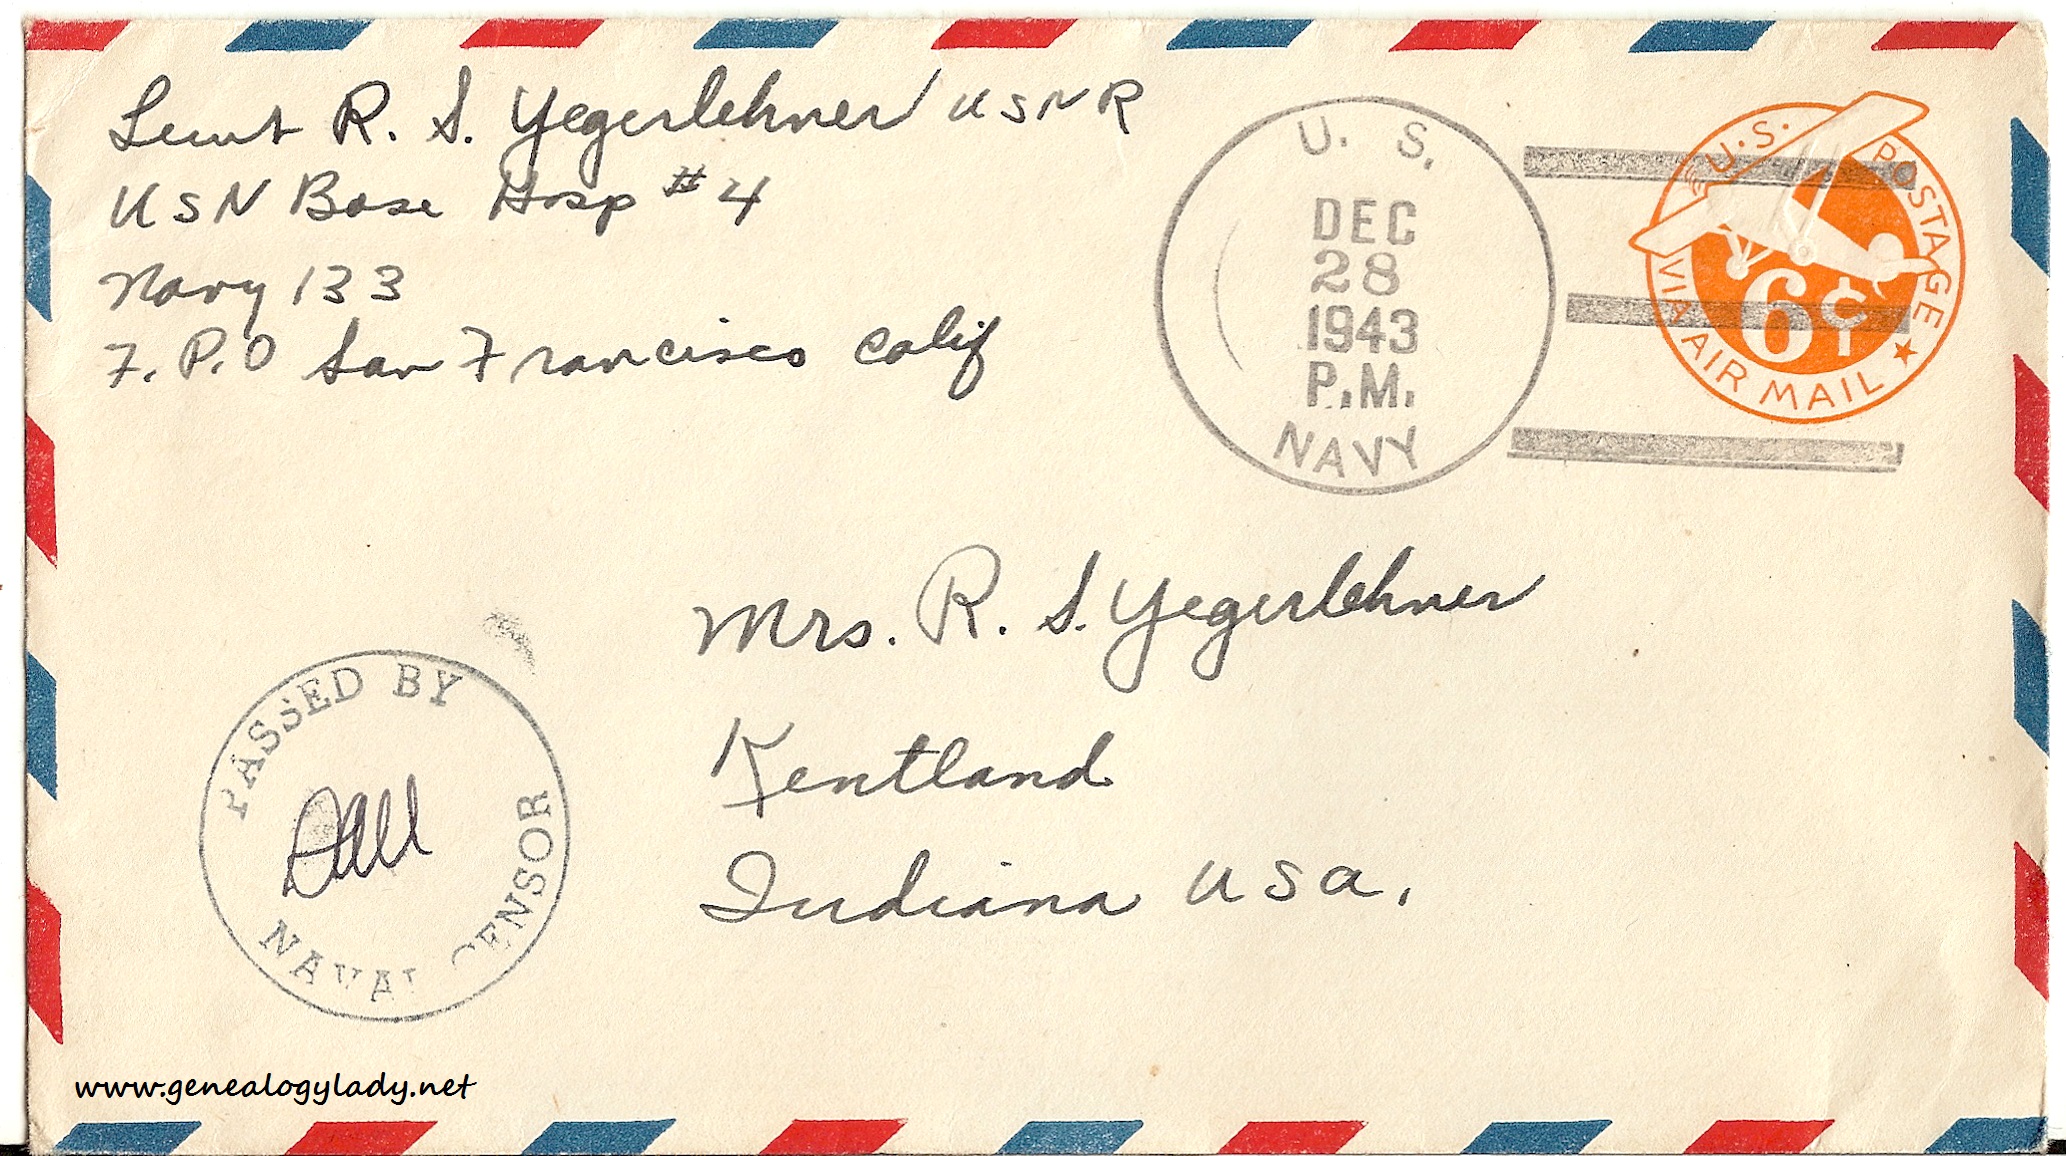 Lieut R. S. Yegerlehner USNR
USN Base Hosp #4
Navy 133
F.P.O San Francisco Calif
U. S.
DEC
28
1943
P.M.
NAVY
U.S. POSTAGE
6¢
VIA AIR MAIL
Mrs. R. S. Yegerlehner
Kentland
Indiana USA.
PASSED BY
NAVAL CENSOR
www.genealogylady.net